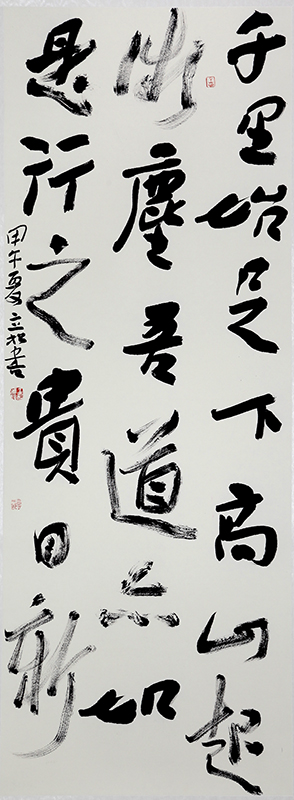 千里始足下高山起
微塵吾道亦如
是行之貴日新
甲午夏立松書